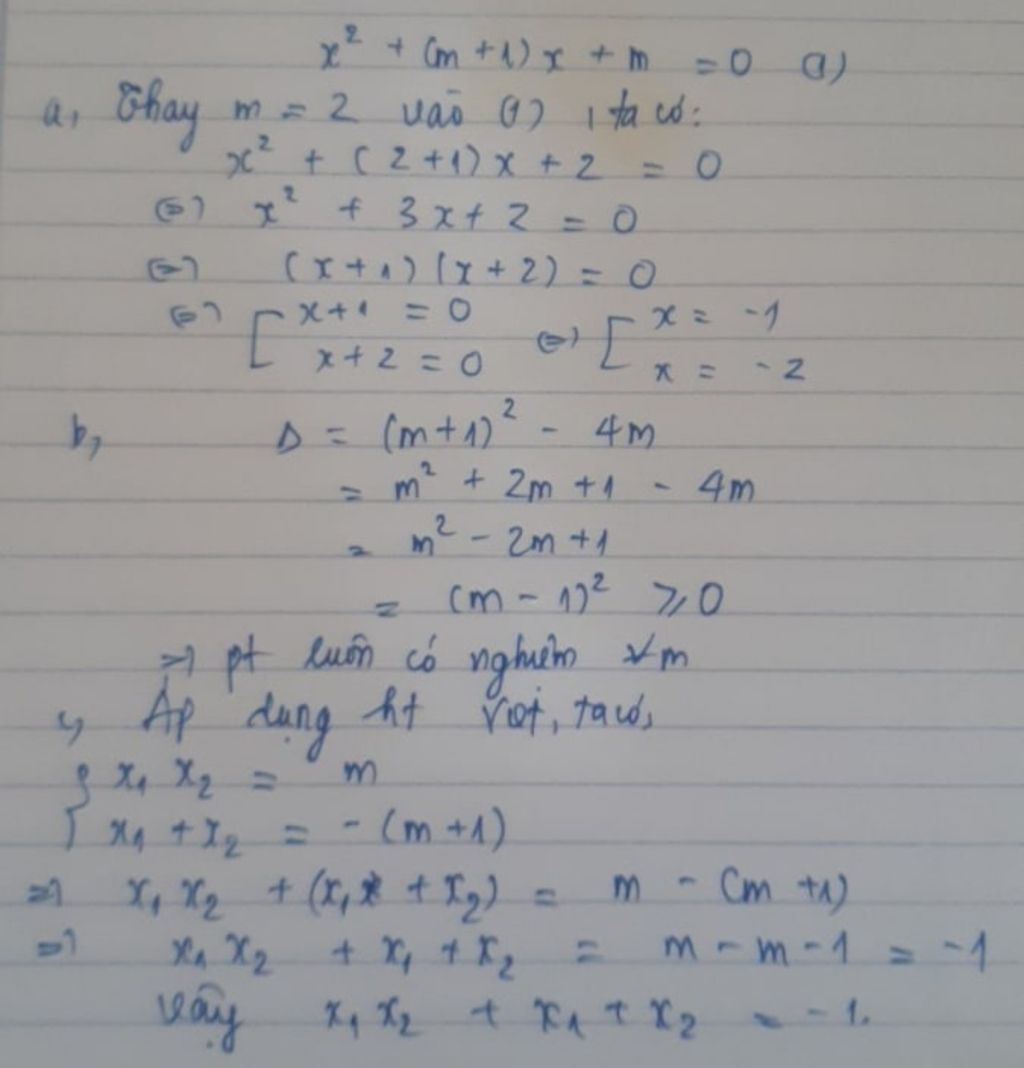 x² + (m+1)x + m = 0 (1)
a, Thay m = 2 vào (1), ta có:
x² + (2+1)x + 2 = 0
(=) x² + 3x + 2 = 0
(=) (x+1)(x+2) = 0
(=) [ x+1 = 0 (=) [ x = -1
x+2 = 0 x = -2
b, Δ = (m+1)² - 4m
= m² + 2m + 1 - 4m
= m² - 2m + 1
= (m - 1)² ⩾ 0
=) pt luôn có nghiệm ∀m
c, Áp dụng ht Viet, ta có,
{ x₁ x₂ = m
x₁ + x₂ = - (m+1)
=) x₁ x₂ + (x₁ + x₂) = m - (m+1)
=) x₁ x₂ + x₁ + x₂ = m - m - 1 = -1
Vậy x₁ x₂ + x₁ + x₂ = -1.